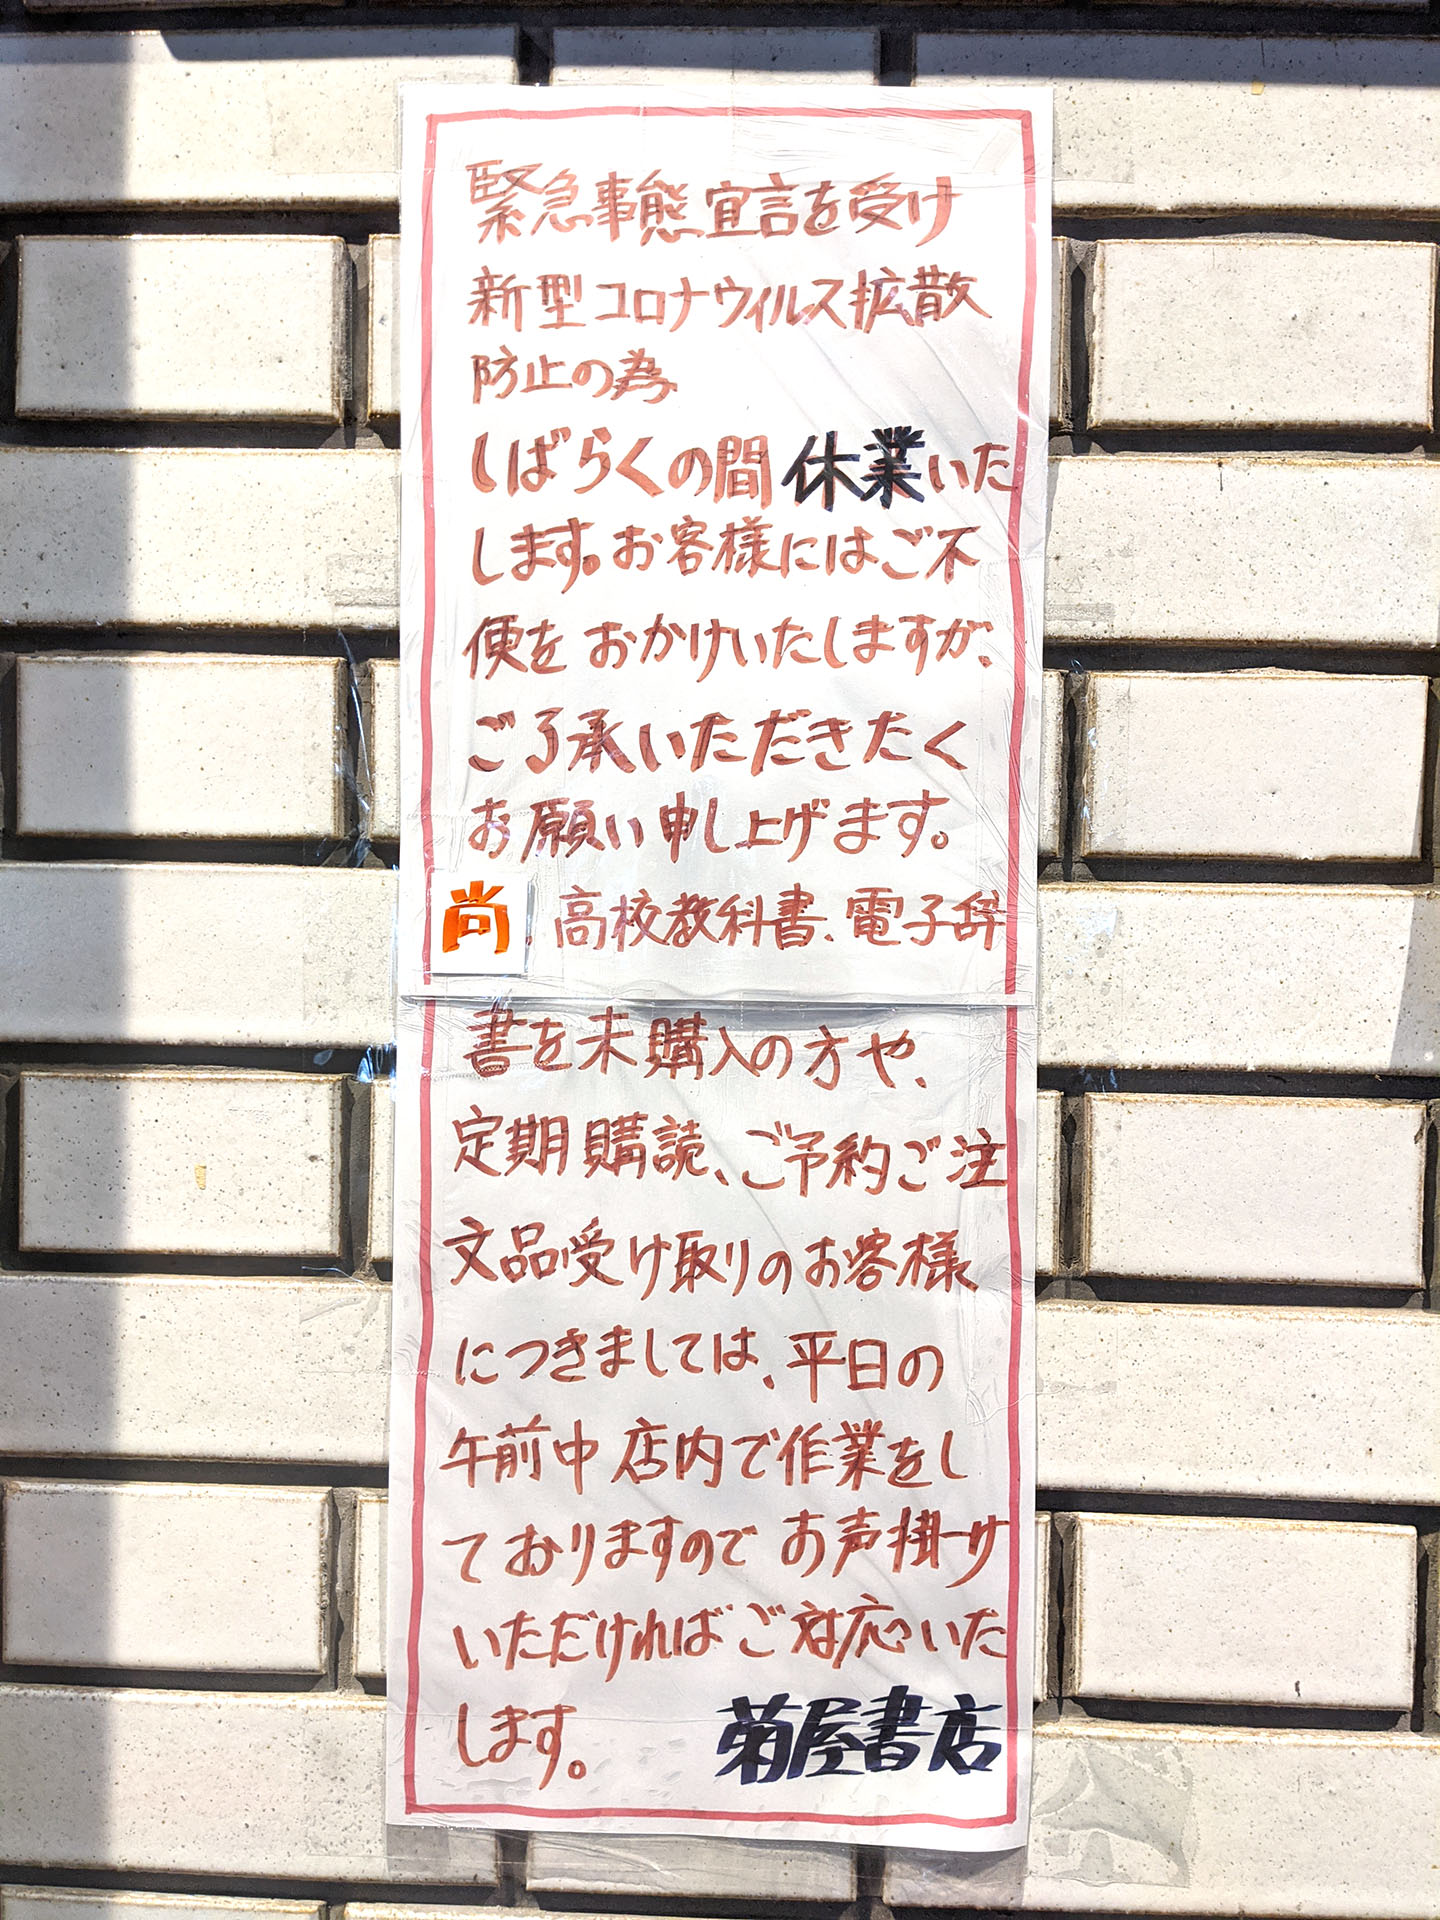 緊急事態宣言を受け
新型コロナウィルス拡散
防止の為
しばらくの間休業いた
します。お客様にはご不
便をおかけいたしますが、
ご了承いただきたく
お願い申し上げます。
尚、高校教科書、電子辞
書を未購入の方や、
定期購読、ご予約ご注
文品受け取りのお客様
につきましては、平日の
午前中店内で作業をし
ておりますのでお声掛け
いただければご対応いた
します。 菊屋書店